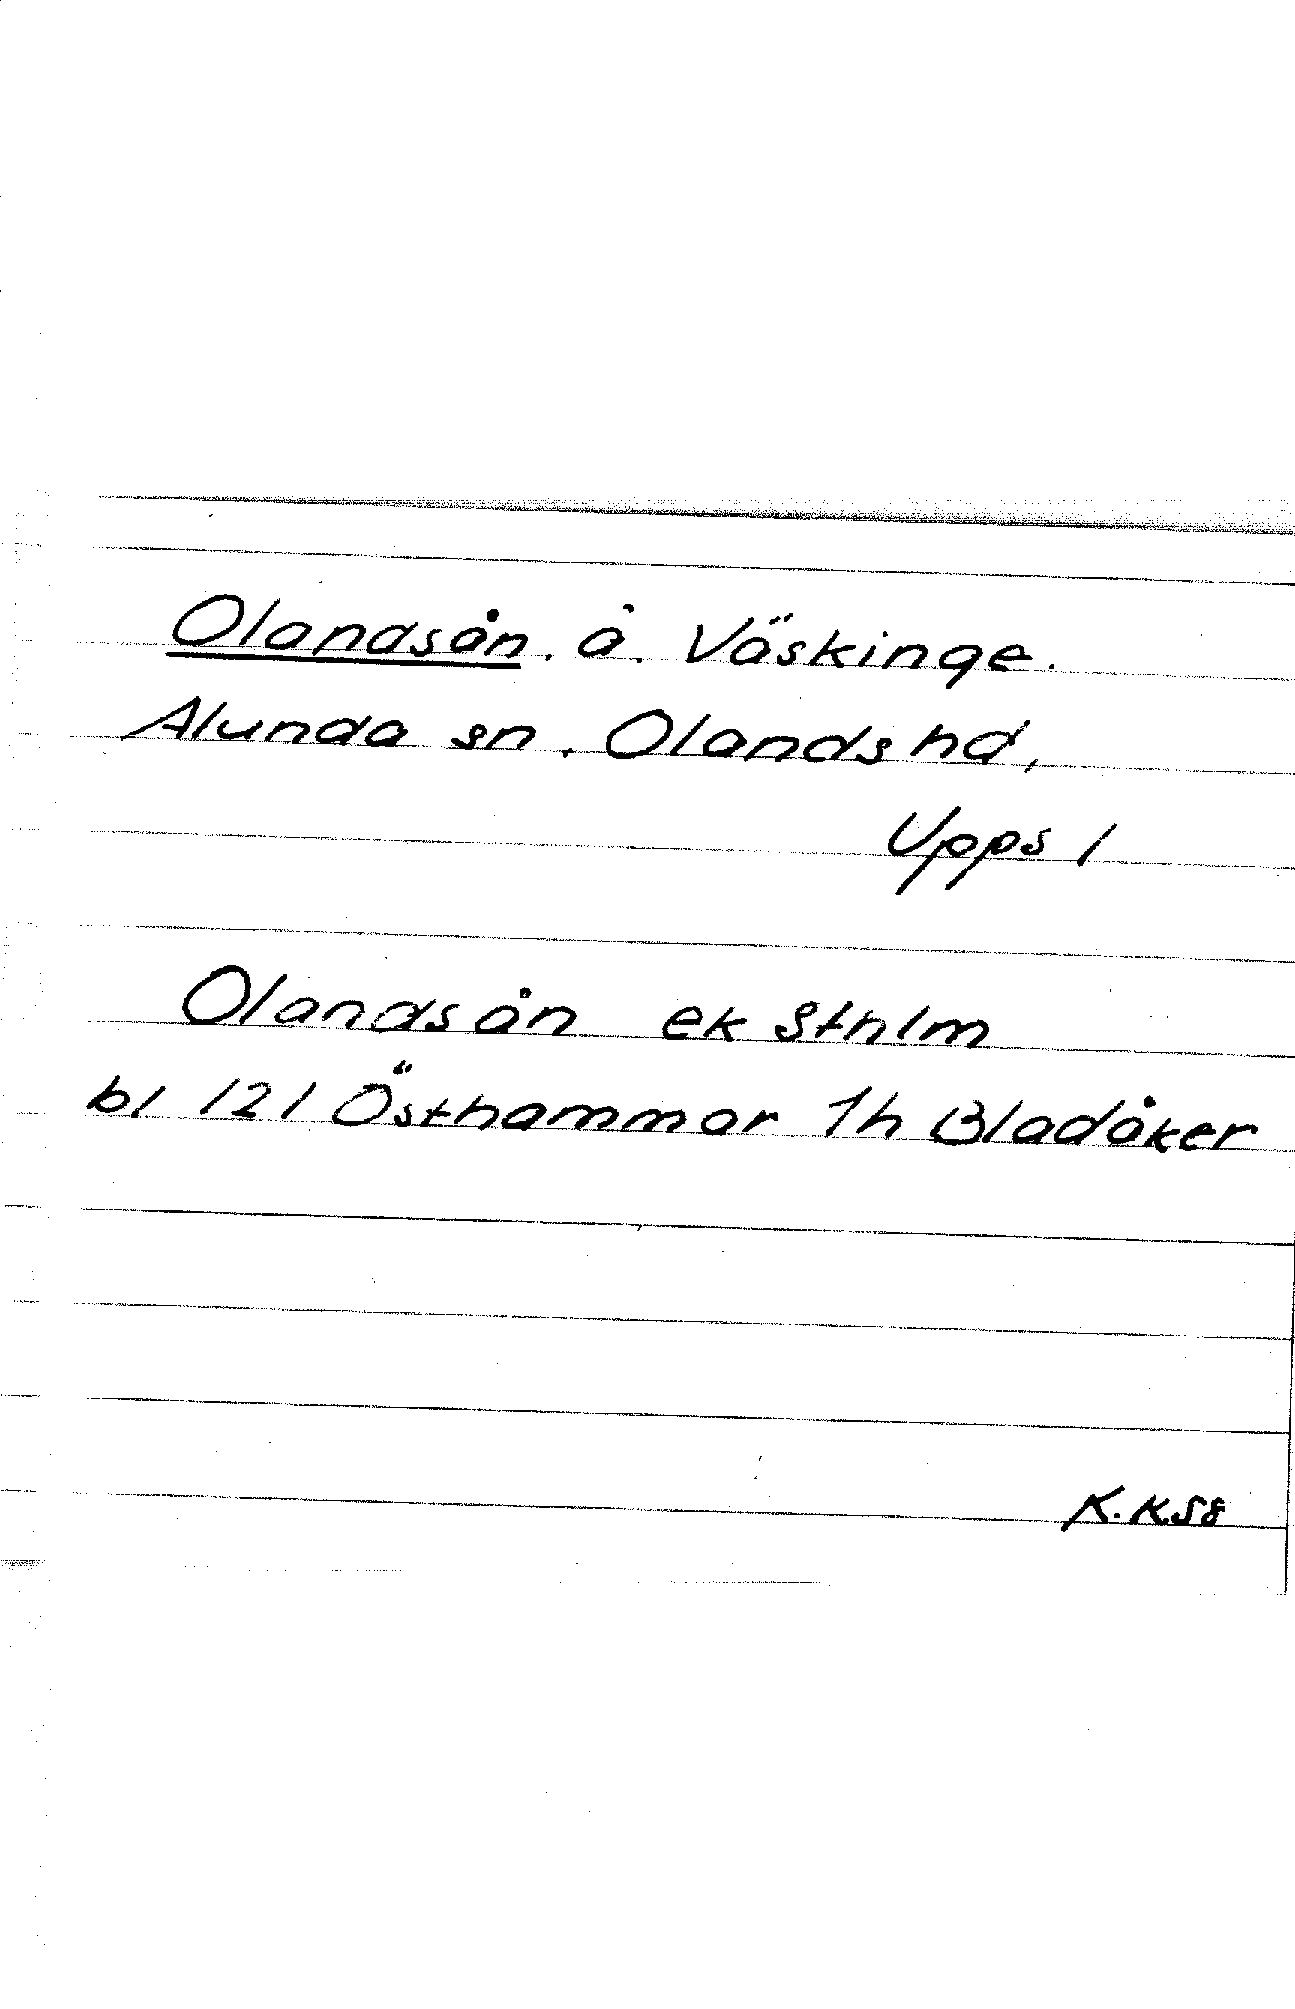 Olandsån. å. Väskinge.
Alunda sn. Olandshd,
Upps l
Olandsån ek Sthlm
bl 121 Östhammar 1h Bladåker
K.K58